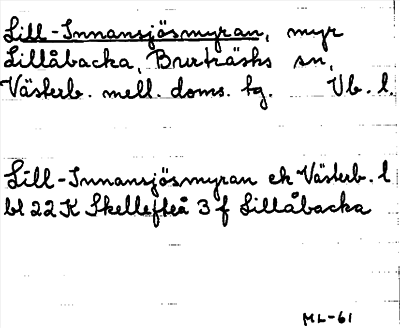 Lill-Innansjösmyran, myr
Lillåbacka, Burträsks sn,
Västerb. mell. doms. tg. Vb. l.
Lill-Innansjösmyran ek Västerb. l
bl 22 K Skellefteå 3 f Lillåbacka
ML-61